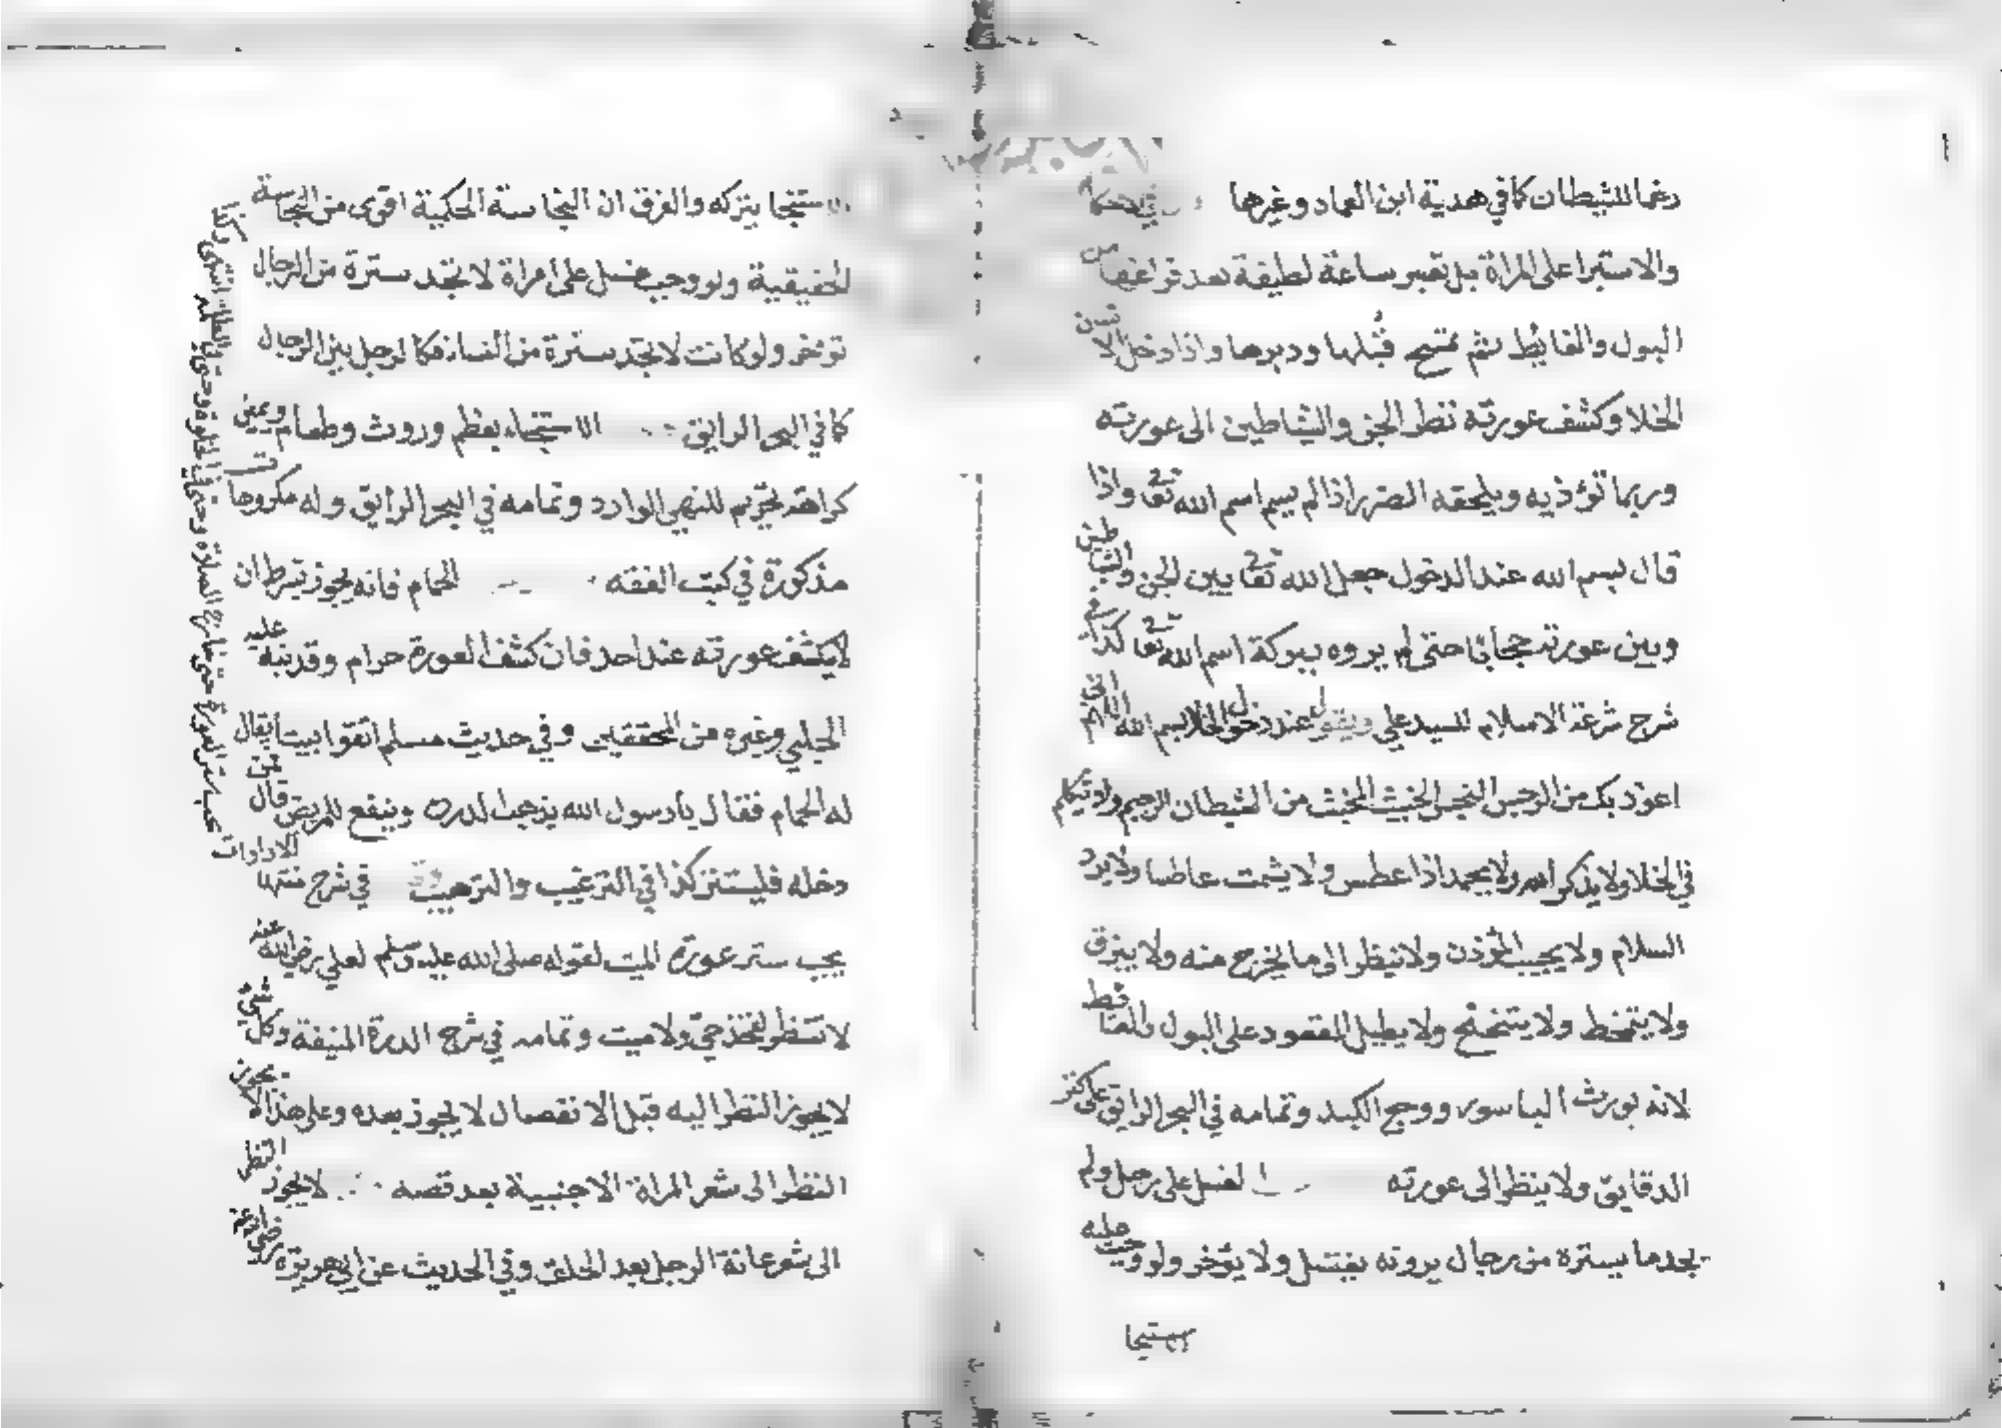 رغما للشيطان كما في هدية ابن العماد وغيرها في احكام
والاستبرا على المراة بل تصبر ساعة لطيفة بعد فراغها من
البول والغايط ثم تمسح قُبلها ودبرها واذا دخل الانسان
الخلا وكشف عورته نظر الجن والشياطين الى عورته
وربما تؤذيه ويلحقه الضرر اذا لم يسم اسم الله تعا واذا
قال بسم الله عند الدخول جعل الله تعا بين الجن والشياطين
وبين عورته حجابا حتى لم يروه ببركة اسم الله تعا كذا في
شرح شرعة الاسلام للسيد علي ويقول عند دخول الخلا بسم الله اللهم اني
اعوذ بك من الرجس النجس الخبيث المخبث من الشيطان الرجيم ولا يتكلم
في الخلا ولا يذكر الله ولا يحمد اذا عطس ولا يشمت عاطسا ولا يرد
السلام ولا يجيب المؤذن ولا ينظر الى ما يخرج منه ولا يبزق
ولا يتمخط ولا يتنحنح ولا يطيل القعود على البول والغائط
لانه يورث الباسور ووجع الكبد وتمامه في البحر الرايق على كنز
الدقايق ولا ينظر الى عورته لغسل على رجل ولم
يجد ما يستره من رجال يرونه يغتسل ولا يؤخر ولو وجب عليه
الاستنجا
الاستنجا يتركه والفرق ان النجاسة الحكمية اقوى من النجاسة
الحقيقية ولو وجب غسل على امراة لا تجد سترة من الرجال
تؤخر ولو كانت لا تجد سترة من النساء فكالرجل بين الرجال
كما في البحر الرايق الاستنجاء بعظم وروث وطعام ويمين
كراهة تحريم للنهي الوارد وتمامه في البحر الرايق وله مكروهات
مذكورة في كتب الفقه الحمام فانه يجوز بشرط ان
لا يكشف عورته عند احد فان كشف العورة حرام وقد نبه عليه
الحلبي وغيره من المحققين وفي حديث مسلم اتقوا بيتا يقال
له الحمام فقال يا رسول الله يذهب الدرن وينفع المريض قال فمن
دخله فليستتر كذا في الترغيب والترهيب في شرح منتهى الارادات
يجب ستر عورة الميت لقوله صلى الله عليه وسلم لعلي رضي الله عنه
لا تنظر لفخذ حي ولا ميت وتمامه في شرح الدرة المنيفة وكل عضو
لا يجوز النظر اليه قبل الانفصال لا يجوز بعده وعلى هذا لا يجوز
النظر الى شعر المراة الاجنبية بعد قصه لا يجوز النظر
الى شعر عانة الرجل بعد الحلق وفي الحديث عن ابي هريرة
يجب ستر العورة حتى خارج الصلاة وحتى في الخلوة وحتى في الظلمة انتهى وكذا